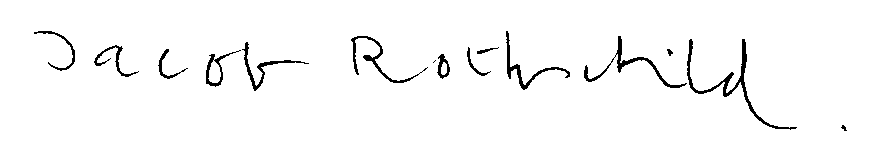 Jacob Rothschild.